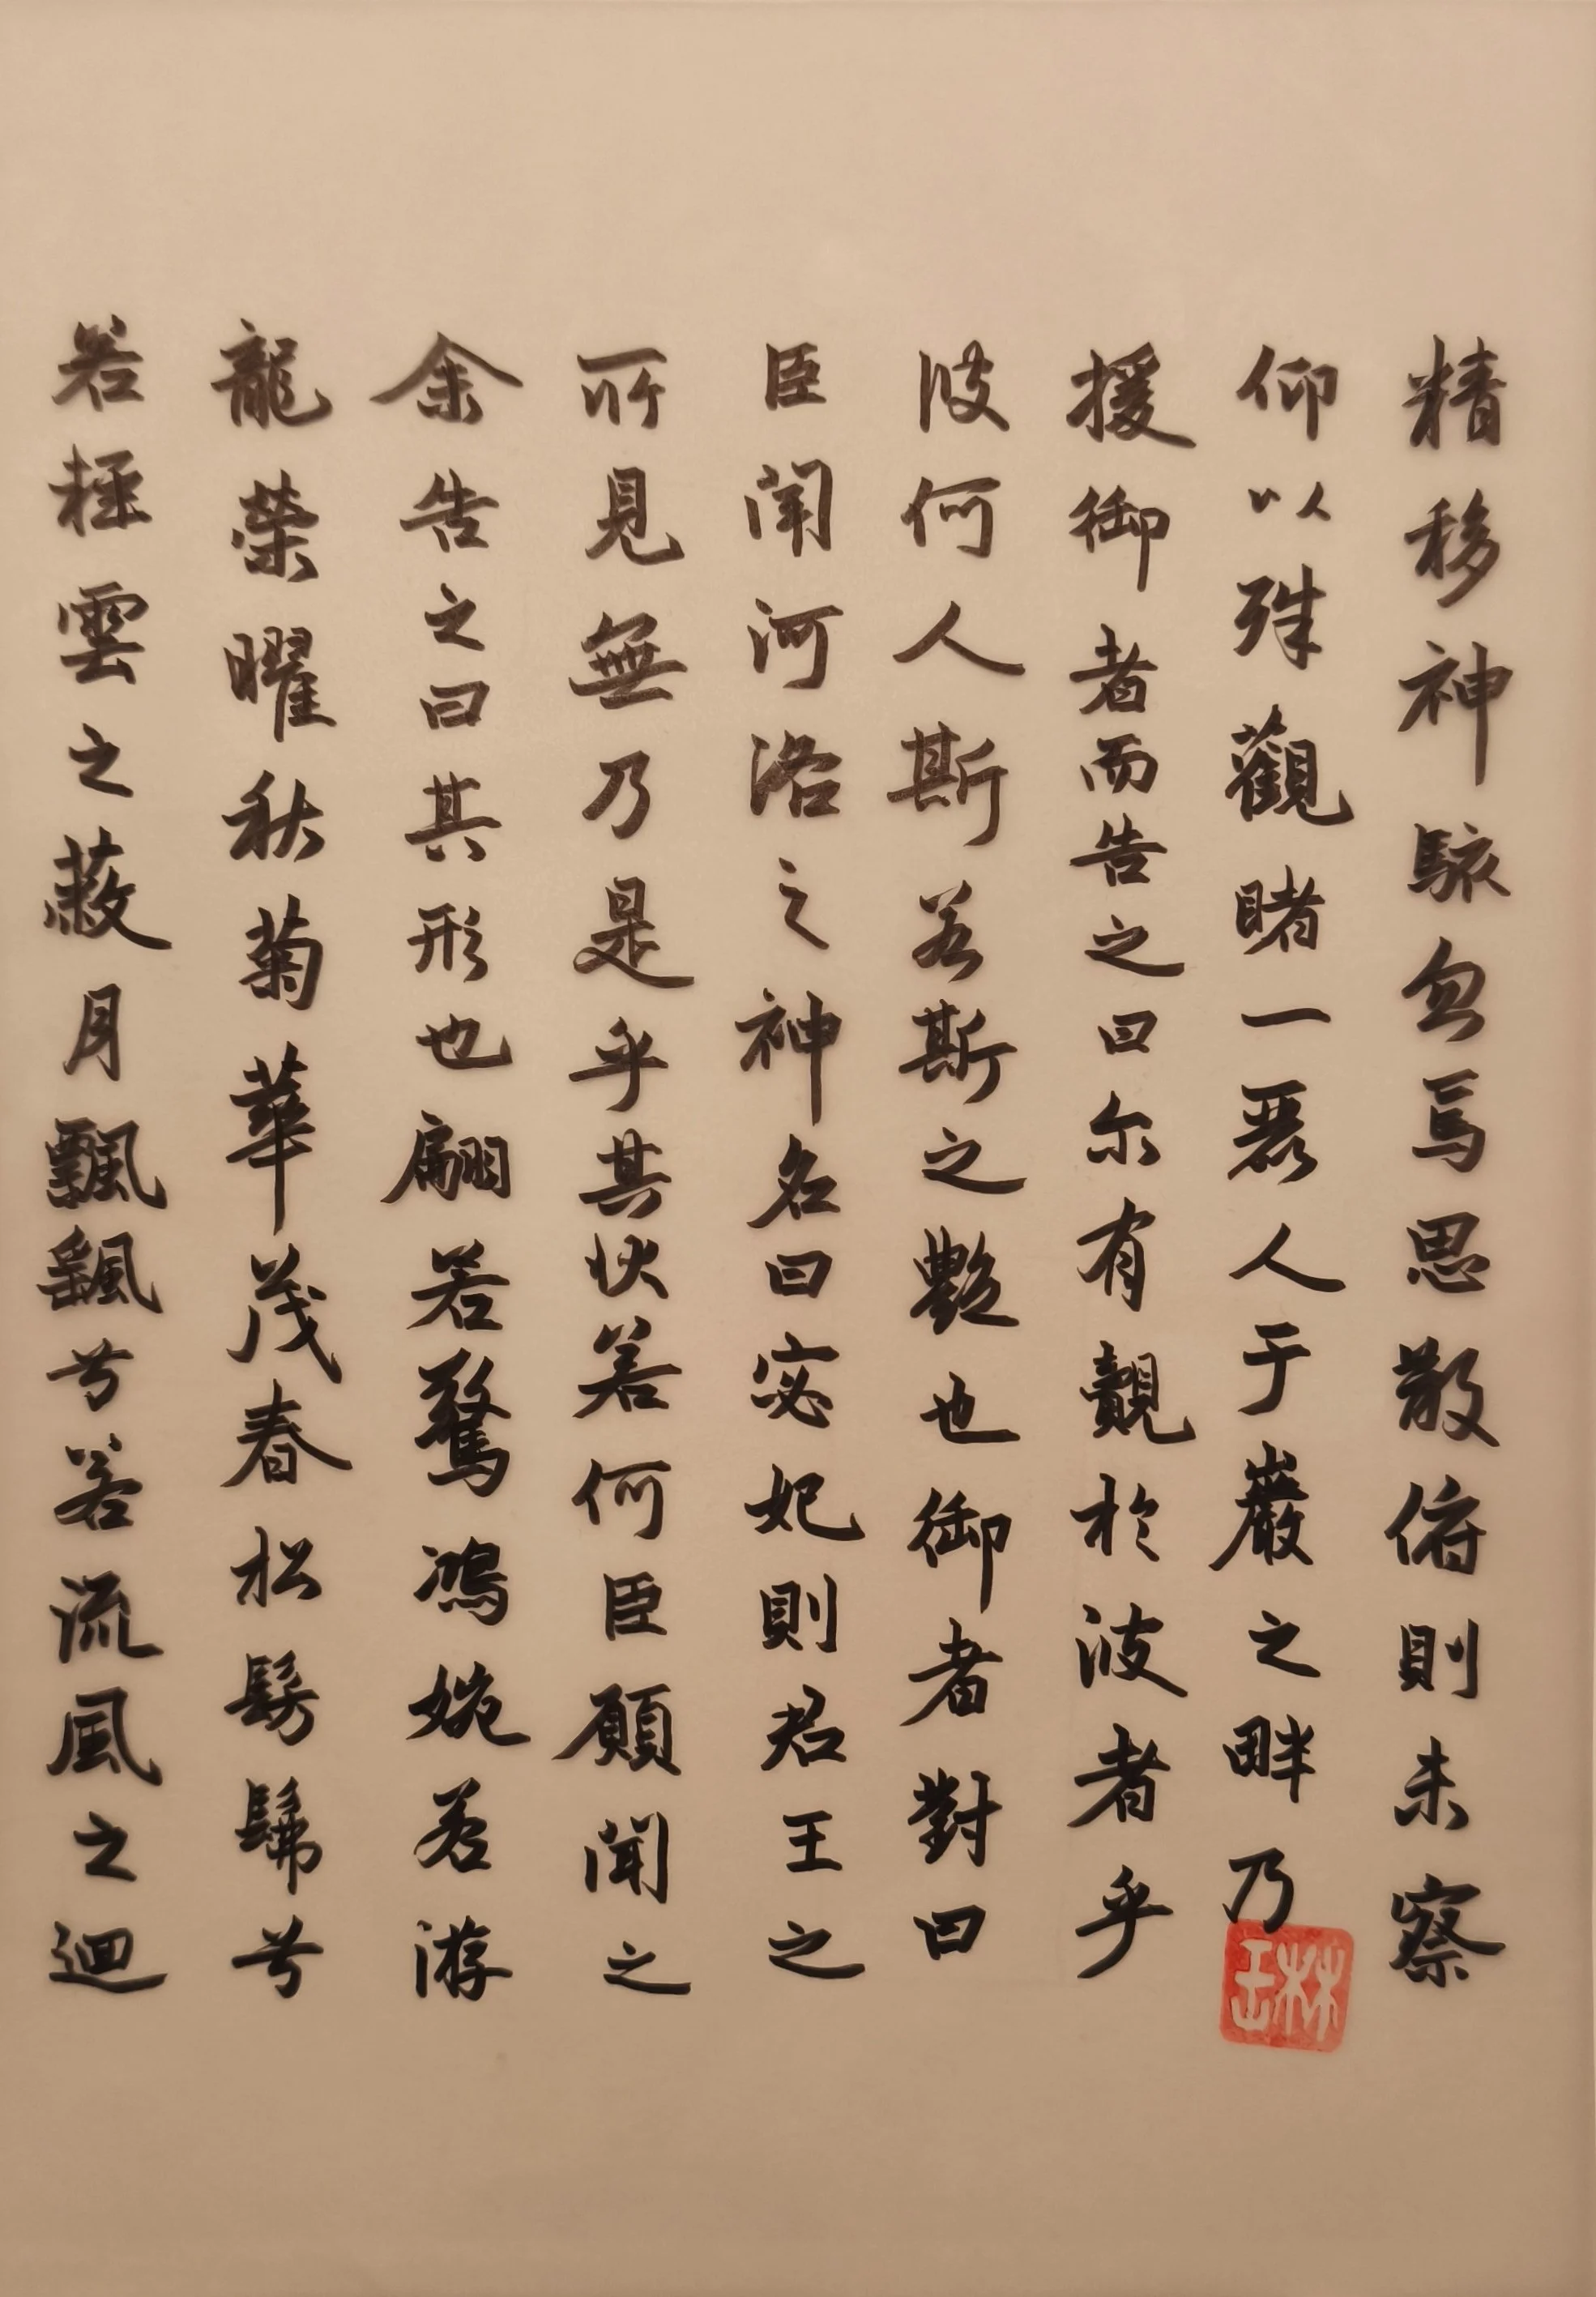 精移神駭忽焉思散俯則未察
仰以殊觀睹一麗人于巖之畔乃
援御者而告之曰尔有覿於彼者乎
彼何人斯若斯之豔也御者對曰
臣聞河洛之神名曰宓妃則君王之
所見無乃是乎其狀若何臣願聞之
余告之曰其形也翩若驚鴻婉若游
龍榮曜秋菊華茂春松髣髴兮
若輕雲之蔽月飄颻兮若流風之迴